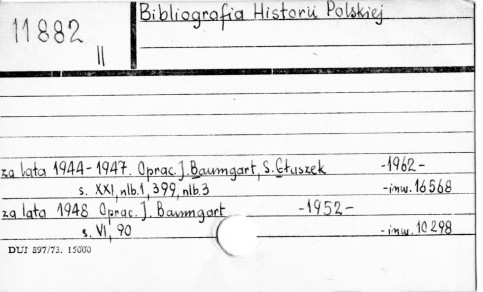 11882
II
Bibliografia Historii Polskiej
za lata 1944-1947. Oprac. J. Baumgart, S. Głuszek -1962-
s. XXI, nlb.1, 399, nlb.3 -inw. 16568
za lata 1948 Oprac. J. Baumgart -1952-
s. VI, 90 -inw. 10298
DUJ 897/73. 15000